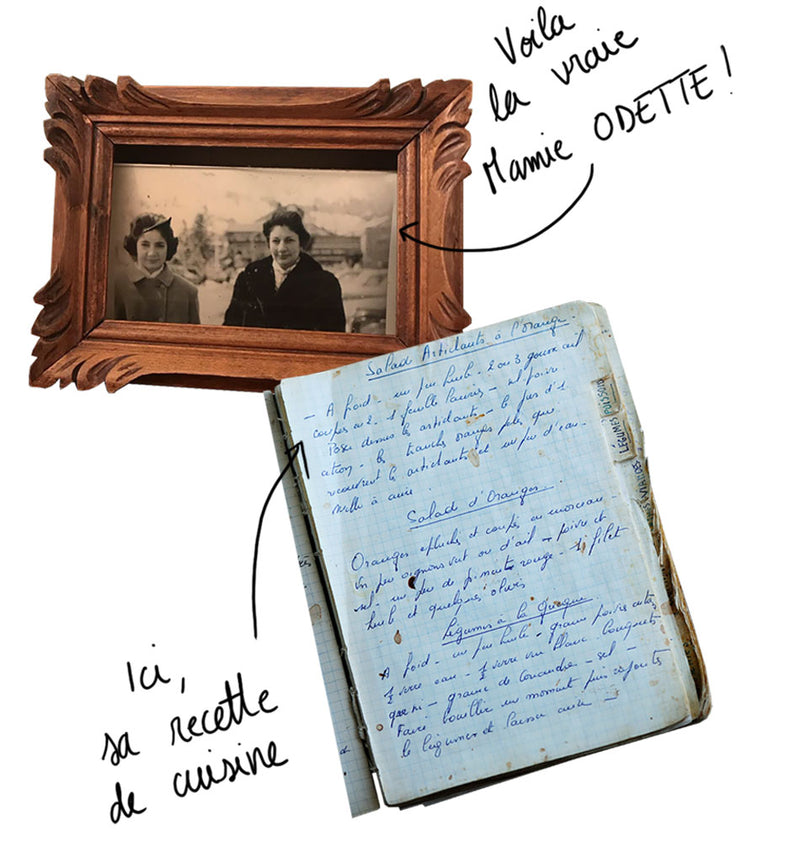 Voila
la vraie
Mamie ODETTE !
Salad Artichauts à l'orange
— A froid - un peu huile - 2 ou 3 gousses ail
coupés en 2 - 1 feuille laurier - sel poivre
Poser dessus les artichauts - le jus d'1
citron - les tranches oranges pelés que
recouvrent les artichauts et un peu d'eau -
à cuire
Salad d'Oranges
Oranges épluchés et coupés en morceau -
un peu oignons vert ou d'ail - poivre et
sel - un peu de piment rouge - 1 filet
huile et quelques olives
Légumes à la Grecque
A froid - un peu huile - grains poivre
½ verre eau - ½ verre vin blanc bouquets
garni - graine de coriandre - sel -
Faire bouillir un moment puis rajouter
le légumes et laisser cuire -
LÉGUMES
POISSON
VIANDES
Ici,
sa recette
de cuisine